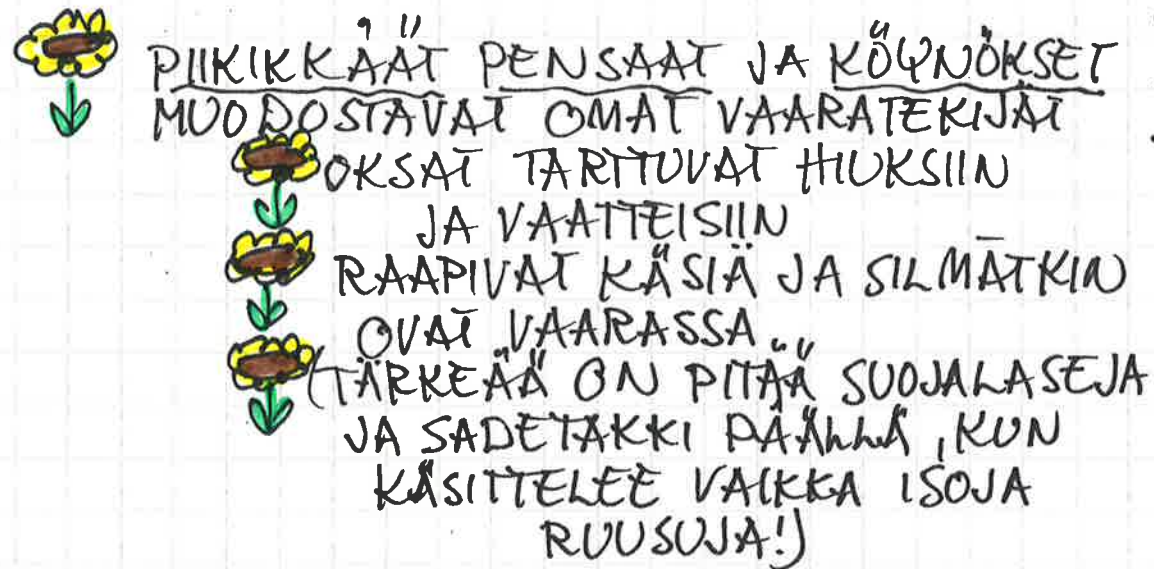 PIIKIKKÄÄT PENSAAT JA KÖYNÖKSET
MUODOSTAVAT OMAT VAARATEKIJÄT
OKSAT TARTTUVAT HIUKSIIN
JA VAATTEISIIN
RAAPIVAT KÄSIÄ JA SILMÄTKIN
OVAT VAARASSA
(TÄRKEÄÄ ON PITÄÄ SUOJALASEJA
JA SADETAKKI PÄÄLLÄ, KUN
KÄSITTELEE VAIKKA ISOJA
RUUSUJA!)